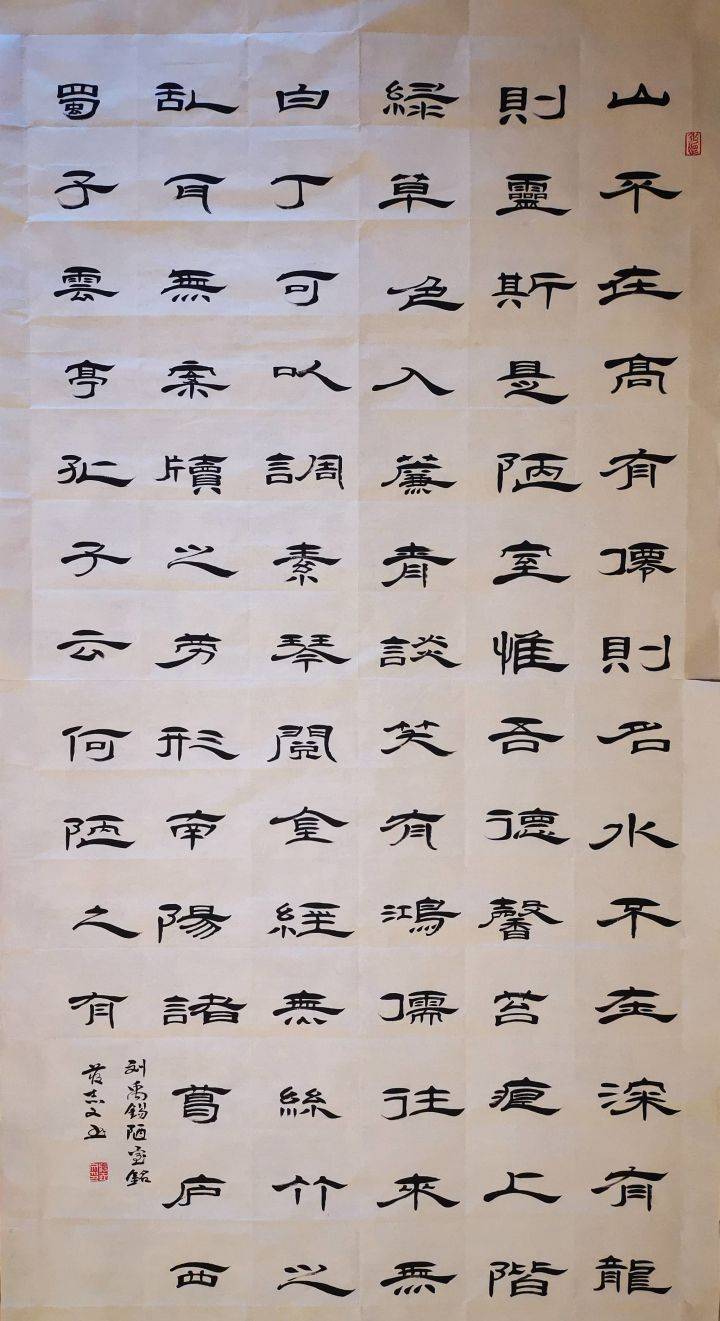 山不在髙有僊則名水不在深有龍
則靈斯是陋室惟吾德馨苔痕上階
緑草色入簾青談笑有鴻儒往來無
白丁可以調素琴閱金經無絲竹之
乱耳無案牘之劳形南陽諸葛庐西
蜀子雲亭孔子云何陋之有
刘禹錫陋室銘
志文书